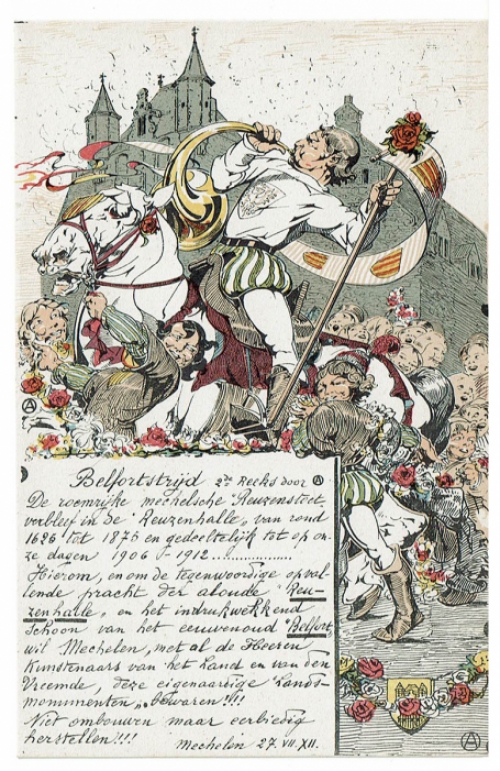 Belfortstrijd 2de Reeks door A
De roemrijke mechelsche Reuzenstoet
verbleef in de "Reuzenhalle" van rond
1626 tot 1876 en gedeeltelijk tot op on-
ze dagen 1906 - 1912.................
Hierom, en om de tegenwoordige opval-
lende pracht der aloude "Reu-
zenhalle", en het indrukwekkend
schoon van het eeuwenoud "Belfort"
wil Mechelen, met al de Heeren
Kunstenaars van het Land en van den
Vreemde, deze eigenaardige "Lands-
monumenten" bewaren!!!
Niet ombouwen maar eerbiedig
herstellen!!!
Mechelen 27. VII. XII.